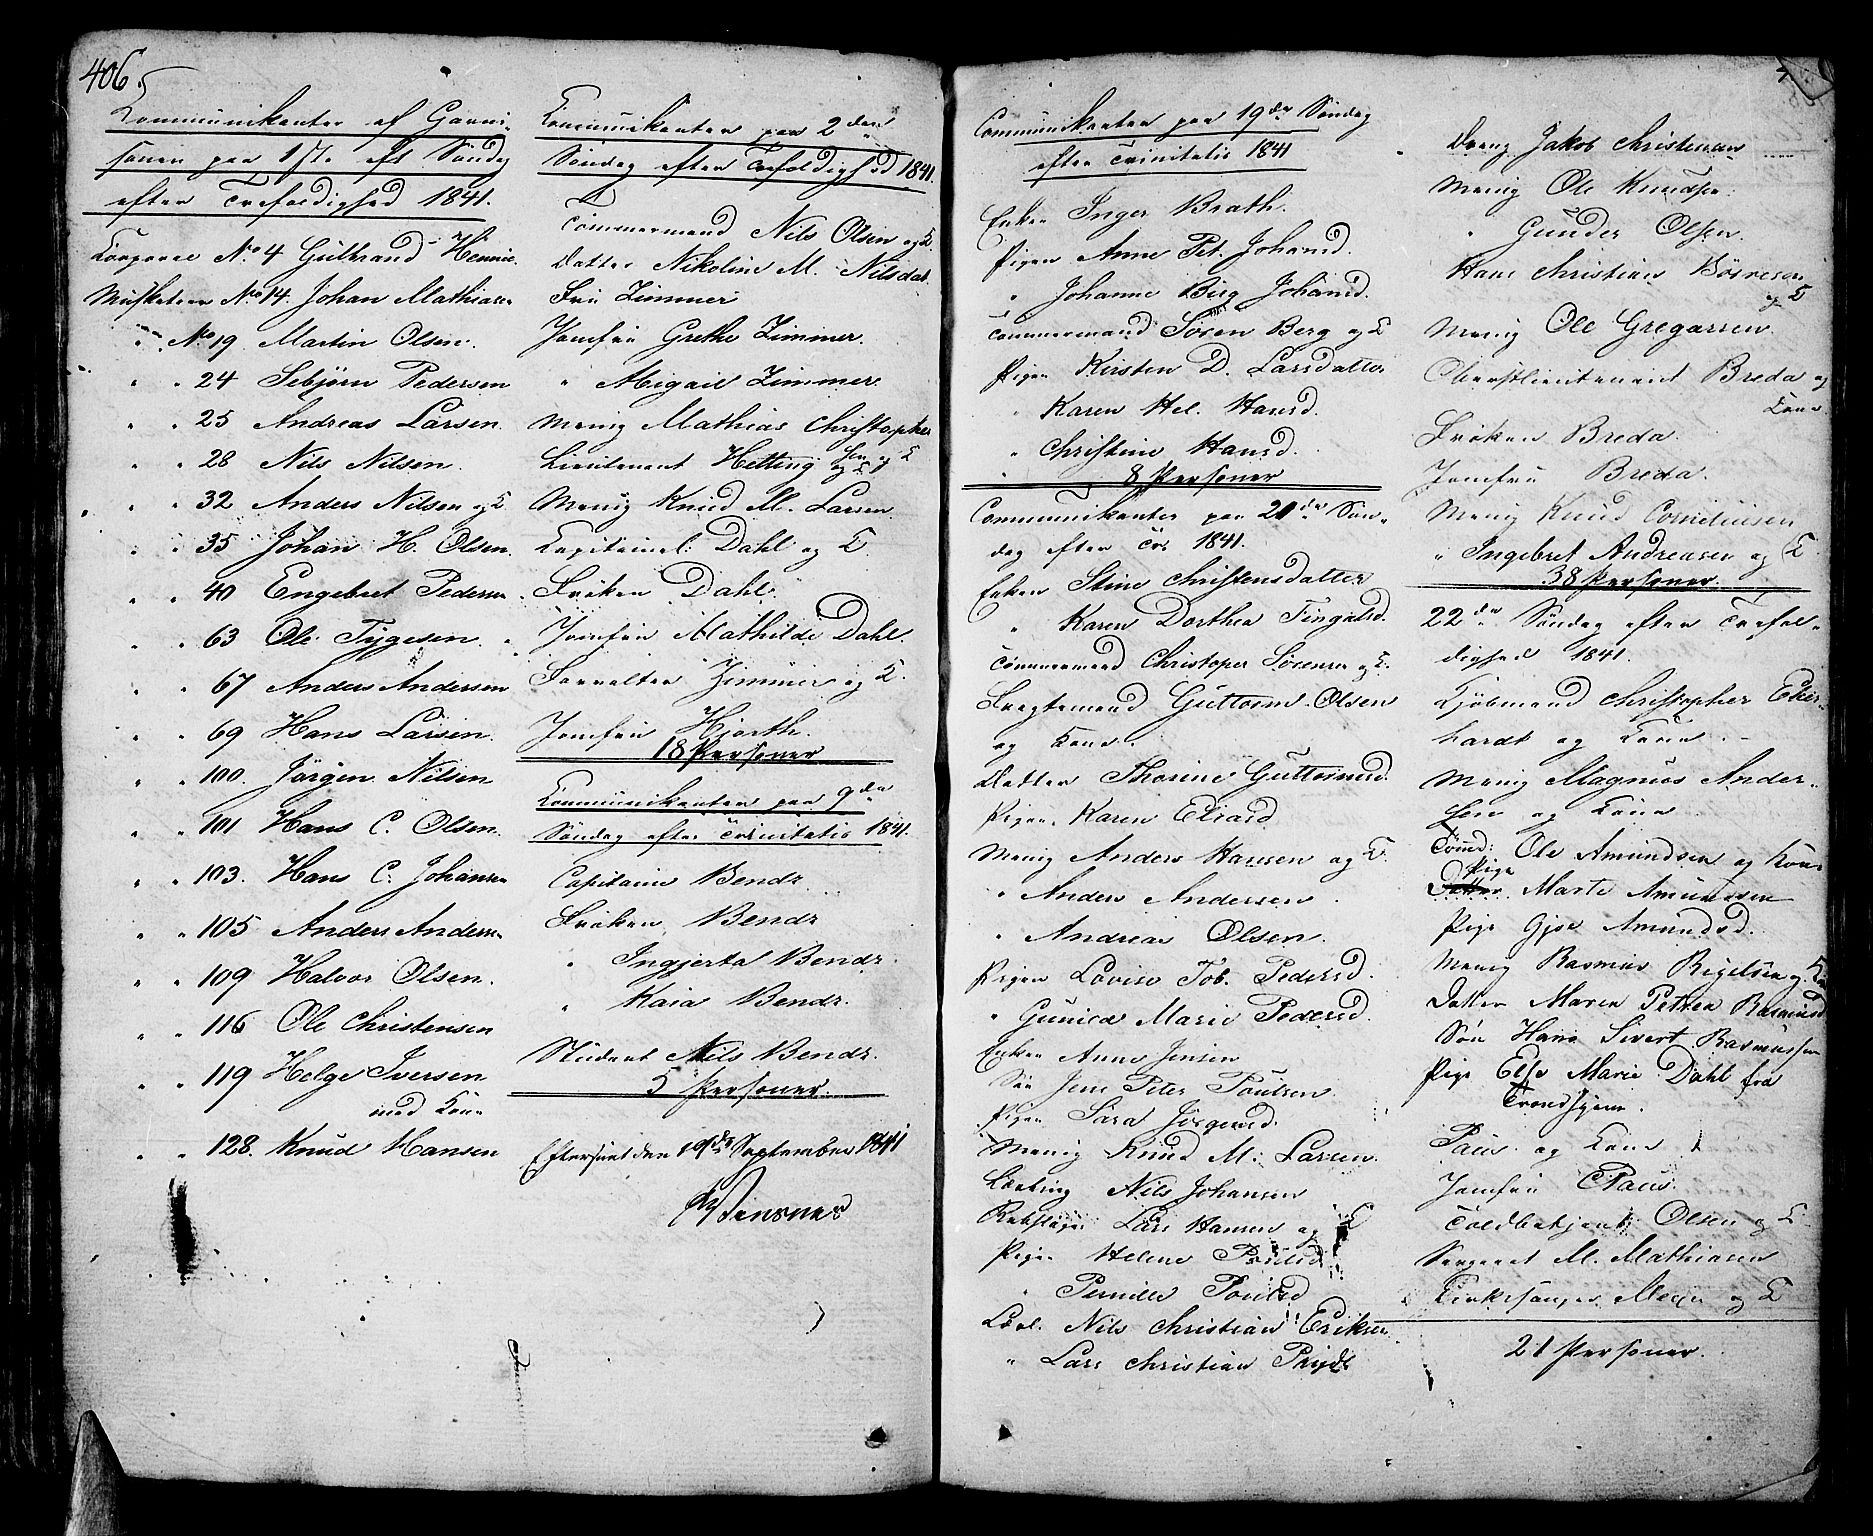 406.
Communikanter af Garni-
sonen paa 1ste Søndag
efter Trefoldighed 1841.
Corporal No. 4 Gulbrand Hennin
Musketeer No. 14. Johan Mathiasen
" No 19 Martin Olsen.
" " 24 Sebjørn Pedersen
" " 25 Andreas Larsen
" " 28 Nils Nilsen.
" " 32 Anders Nilsen og K
" " 35 Johan H. Olsen.
" " 40 Engebret Pedersen
" " 63 Ole Tygesen.
" " 67 Anders Andersen
" " 69 Hans Larsen.
" " 100. Jørgen Nilsen
" " 101 Hans C. Olsen.
" " 103. Hans C. Johansen
" " 105 Anders Andersen
" " 109 Halvor Olsen.
" " 116 Ole Christensen
" " 119 Helge Iversen
med Kone
" " 128. Knud Hansen
Communikanter paa 2den
Søndag efter Trefoldighed 1841.
Tømmermand Nils Olsen og K
Datter Nikoline M. Nilsdat.
Fru Zimmer
Jomfru Grethe Zimmer.
" Abigail Zimmer
Menig Mathias Christopher
sen og K
Lieutenant Hetting og K
Menig Knud M. Larsen.
Capitainl. Dahl og K.
Frøken Dahl.
Jomfru Mathilde Dahl.
Forvalter Zimmer og K.
Jomfru Hjorth.
18 Personer
Communikanter paa 9de
Søndag efter Trinitatis 1841.
Capitain Bendz
Frøken Bendz
" Ingjerta Bendz
" Kaia Bendz.
Student Nils Bendz.
5 Personer.
Efterseet den 19de September 1841
Communikanter paa 19de Søndag
efter Trinitatis 1841
Enken Inger Brath.
Pigen Anne Pet. Johansd.
" Johanne Birg Johansd.
Tømmermand Søren Berg og K
Pigen Kirsten D. Larsdatter
" Karen Hel. Hansd.
" Christine Hansd.
8 Personer
Communikanter paa 21de Søn-
dag efter Tre 1841.
Enken Stine Christensdatter
" Karen Dorthea Tingalsd.
Tømmermand Christopher Sørensen og K.
Fragtemand Guttorm Olsen
og Kone.
Datter Thorine Guttormsd.
Pigen Karen Eliasd
Menig Anders Hansen og K.
" Anders Andersen
" Andreas Olsen.
Pigen Lovise Tob. Pedersd.
" Gunild Marie Pedersd.
Enken Anne Jensen
Søn Jens Peter Poulsen.
Pigen Sara Jørgensd.
Menig Knud M. Larsen.
Lærling Nils Johansen
Rebslager Lars Hansen og K
Pigen Helene Poulsd
" Pernille Poulsd
Lærl. Nils Christian Eriksen
" Lars Christian
Dreng Jakob Christensen
Menig Ole Knudsen.
" Gunder Olsen.
Hans Christian Børresen
og K
Menig Ole Gregersen.
Oberstlieutenant Breda og
Kone
Frøken Breda.
Jomfru Breda.
Menig Knud Corneliusen
" Ingebret Andreasen og K
38 Personer.
22de Søndag efter Trefol-
dighed 1841.
Kjøbmand Christopher Eber-
hardt og Kone.
Menig Magnus Ander-
sen og Kone
Tømd: Ole Amundsen og Kone
Pige
Datter Marte Amundsen
Pige Gjse Amundsd.
Menig Rasmus Bigelsen og Kone
Datter Maren Petrea Rasmusd
Søn Hans Sivert Rasmussen
Pige Else Marie Dahl fra
Trondhjem.
Paus og Kone
Jomfru Paus.
Toldbetjent Olsen og K
Sergeant M. Mathiasen
Kirkesanger og K
21 Personer.